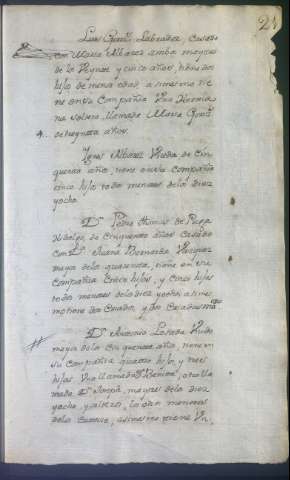 21
Luis Gonz. Labrador Casado
con Maria Albarez ambos mayores
de los Veynte y cinco años, tiene dos
hijos de menor edad, asimismo tie
ne en su Compañia Una Hermana
na soltera, llamada Maria Gonz.
4.. de treynta años.
Ygnes Albarez Viuda de Cin
quenta años tiene en su Compañia
cinco hijos todos menores de los diez
yocho
Dn. Pedro Thomas de
Hidalgo, de cinquenta años Casado
con Da. Juana Bernarda Vazquez
mayor de los quarenta, tiene en su
Compañia hijos, y Cinco hijas
todos menores de los diez yocho, asimis
mo tiene dos Criados, y dos Criadas
Dn. Antonio Losada Viudo
mayor de los Cinquenta años, tiene en
su Compañia quatro hijos, y tres
hijas Una llamada Da. Benita, otra lla
mada Da. Josepha, mayores de los diez
yocho, y los demas menores
de los Catorce, asimismo tiene Un